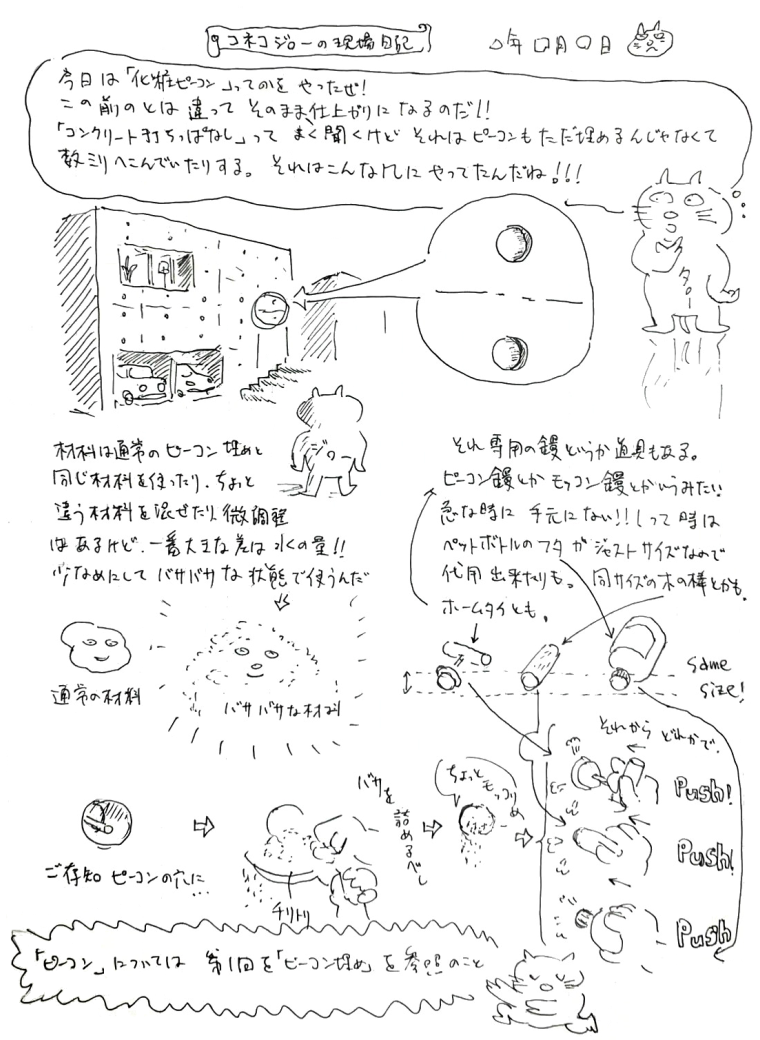 コネコジローの現場日記
○年□月○日
今日は「化粧ピーコン」ってのをやったぜ!
この前のとは違ってそのまま仕上がりになるのだ!!
「コンクリート打ちっぱなし」ってよく聞くけどそれはピーコンもただ埋めるんじゃなくて
数ミリへこんでいたりする。それはこんな風にやってたんだね!!!
タロー
ジロー
材料は通常のピーコン埋めと
同じ材料を使ったり、ちょっと
違う材料を混ぜたり、微調整
はあるけど、一番大きな差は水の量!!
少なめにしてバサバサな状態で使うんだ
通常の材料
バサバサな材料
それ専用の鏝というか道具もある。
ピーコン鏝とかモッコン鏝とかいうみたい
急な時に手元にない!!って時は
ペットボトルのフタがジャストサイズなので
代用出来たりも。同サイズの木の棒とかも。
ホームタイとも。
same
size!
ご存知ピーコンの穴に…
チリトリ
バサを
詰めるべし
ちょっと
モッコリめ
それからどれかで、
Push!
Push!
Push
「ピーコン」については第1回を「ピーコン埋め」を参照のこと